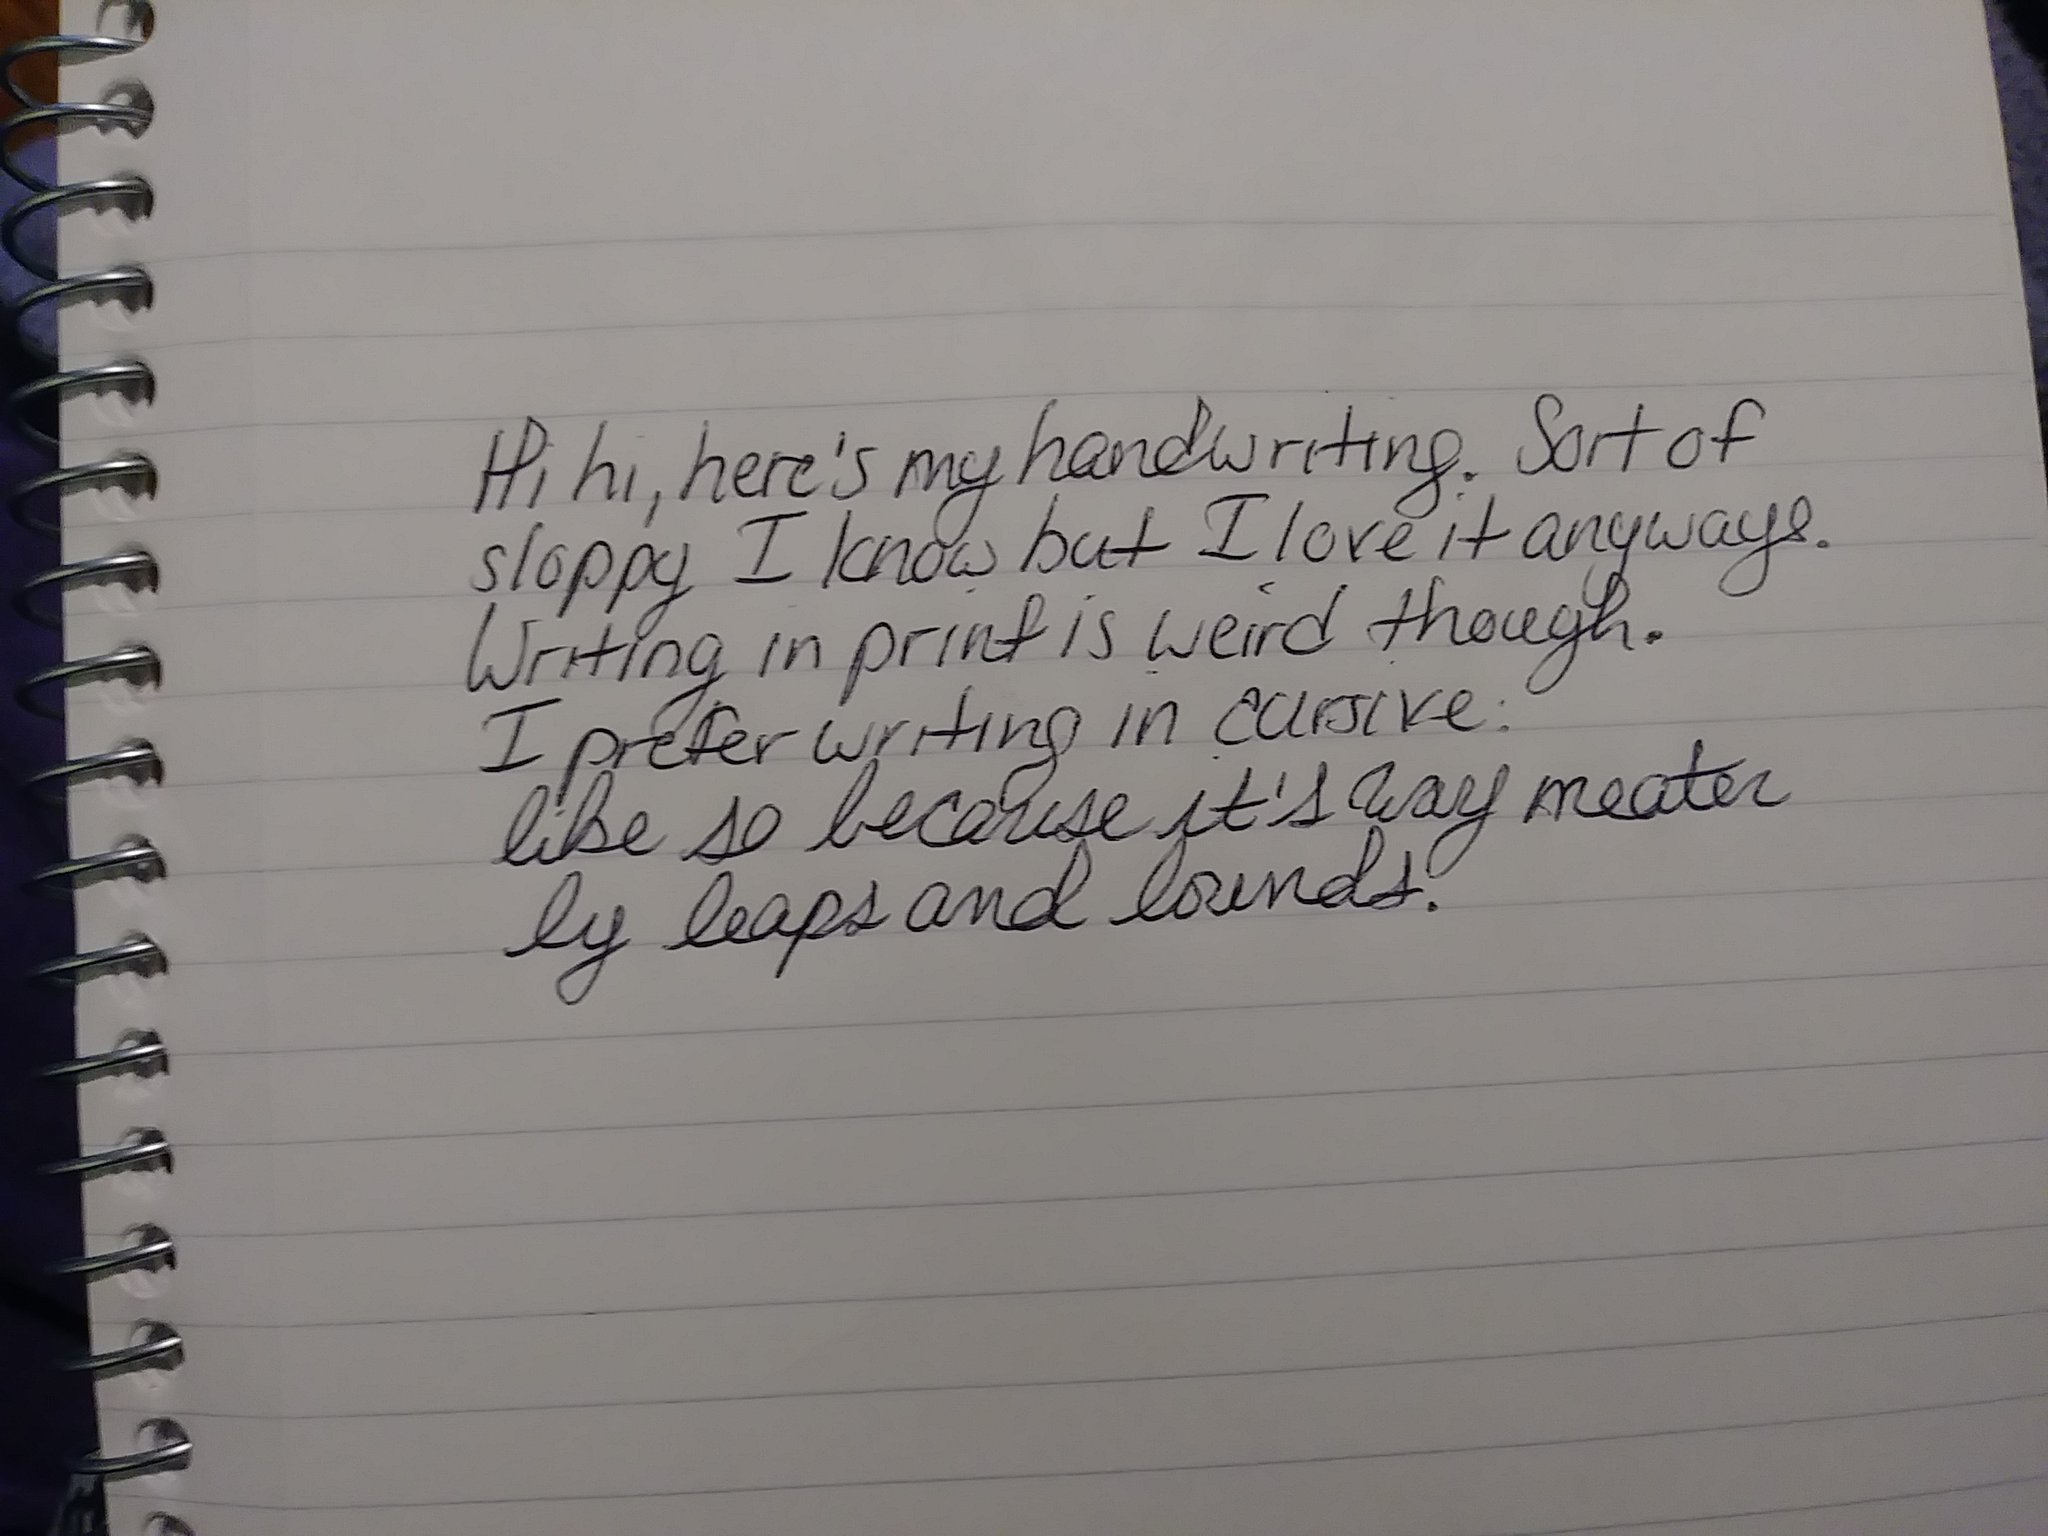 Hi hi, here's my handwriting. Sort of
sloppy I know but I love it anyways.
Writing in print is weird though.
I prefer writing in cursive:
like so because it's way neater
by leaps and bounds.